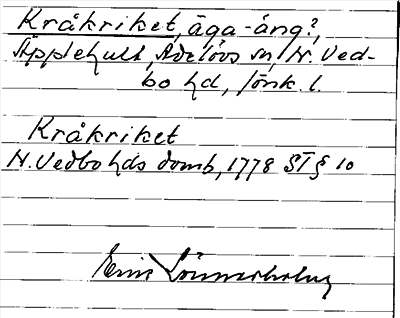 Kråkriket, äga-äng?,
Äpplehult, Adelövs sn, N. Ved-
bo hd, Jönk. l.
Kråkriket
N. Vedbo hds domb, 1778 ST § 10